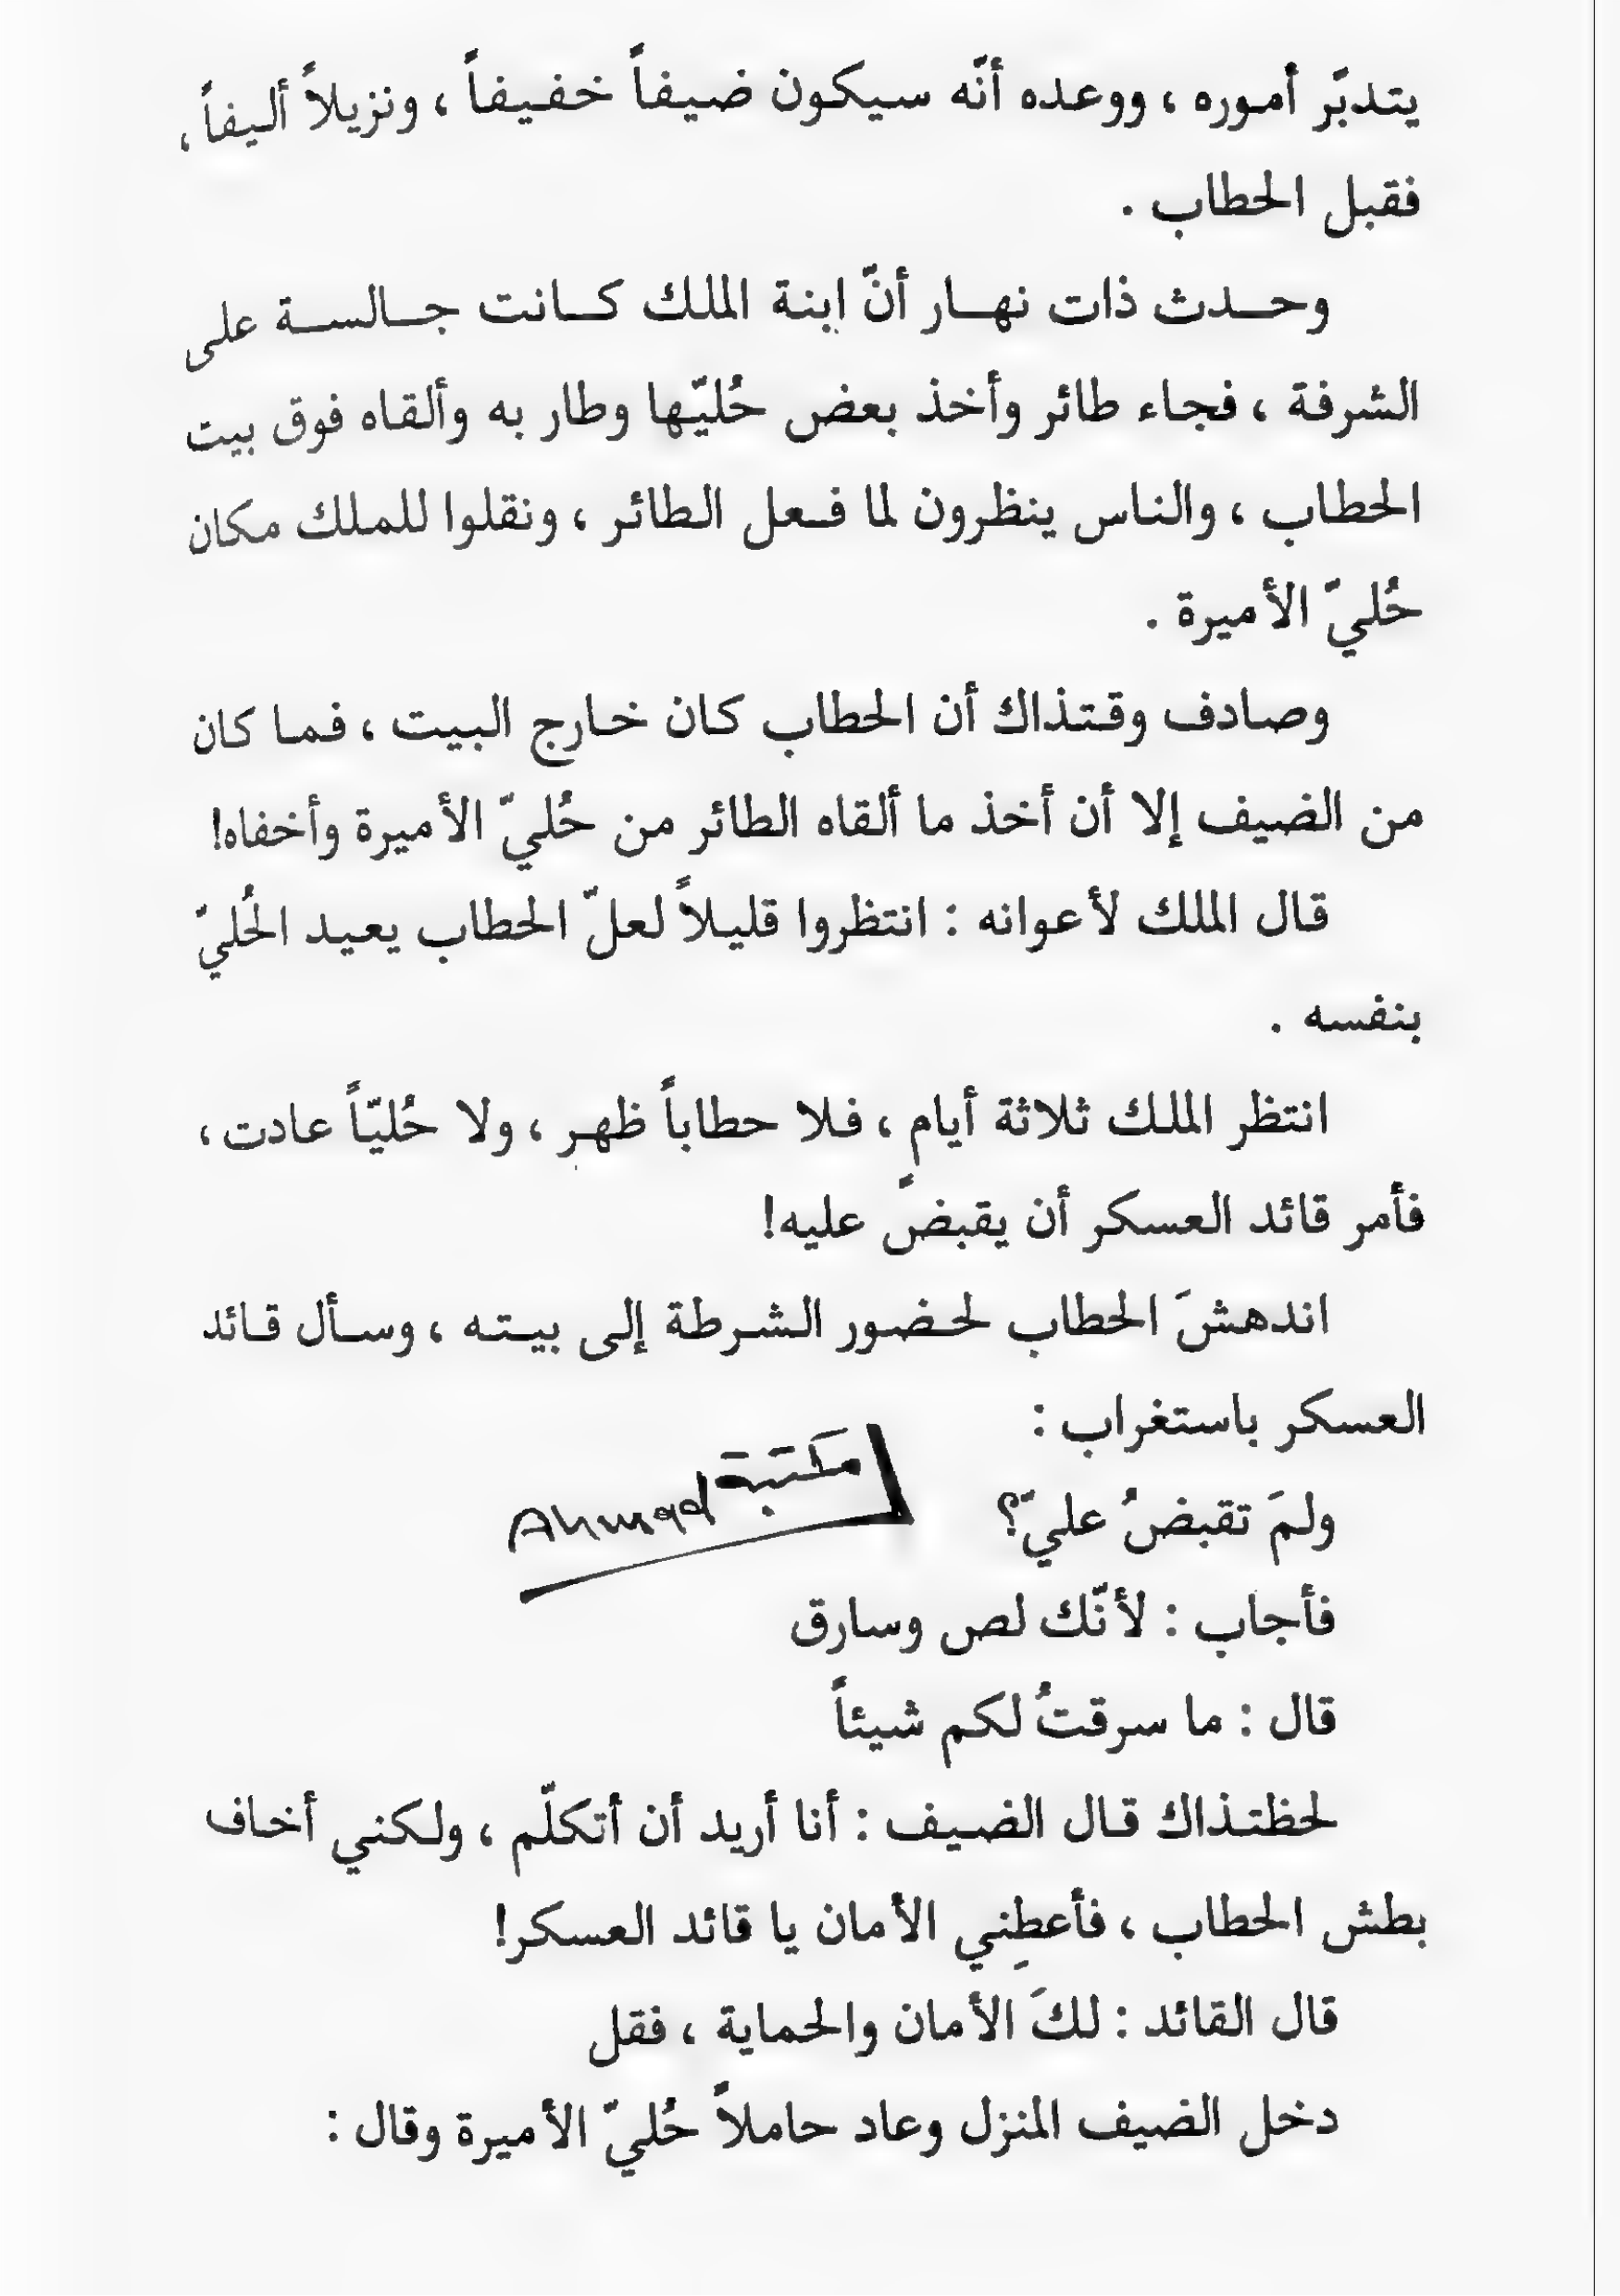 يتدبَّر أموره ، ووعده أنّه سيكون ضيفاً خفيفاً ، ونزيلاً أليفاً ،
فقبل الحطاب .
وحدث ذات نهار أنّ ابنة الملك كانت جالسة على
الشرفة ، فجاء طائر وأخذ بعض حُليّها وطار به وألقاه فوق بيت
الحطاب ، والناس ينظرون لما فعل الطائر ، ونقلوا للملك مكان
حُليّ الأميرة .
وصادف وقتذاك أن الحطاب كان خارج البيت ، فما كان
من الضيف إلا أن أخذ ما ألقاه الطائر من حُليّ الأميرة وأخفاه!
قال الملك لأعوانه : انتظروا قليلاً لعلّ الحطاب يعيد الحُليّ
بنفسه .
انتظر الملك ثلاثة أيامٍ ، فلا حطاباً ظهر ، ولا حُليّاً عادت ،
فأمر قائد العسكر أن يقبضَ عليه!
اندهشَ الحطاب لحضور الشرطة إلى بيته ، وسأل قائد
العسكر باستغراب :
مكتبة Ahmad
ولمَ تقبضُ عليّ؟
فأجاب : لأنّك لص وسارق
قال : ما سرقتُ لكم شيئاً
لحظتذاك قال الضيف : أنا أريد أن أتكلّم ، ولكني أخاف
بطش الحطاب ، فأعطِني الأمان يا قائد العسكر!
قال القائد : لكَ الأمان والحماية ، فقل
دخل الضيف المنزل وعاد حاملاً حُليّ الأميرة وقال :